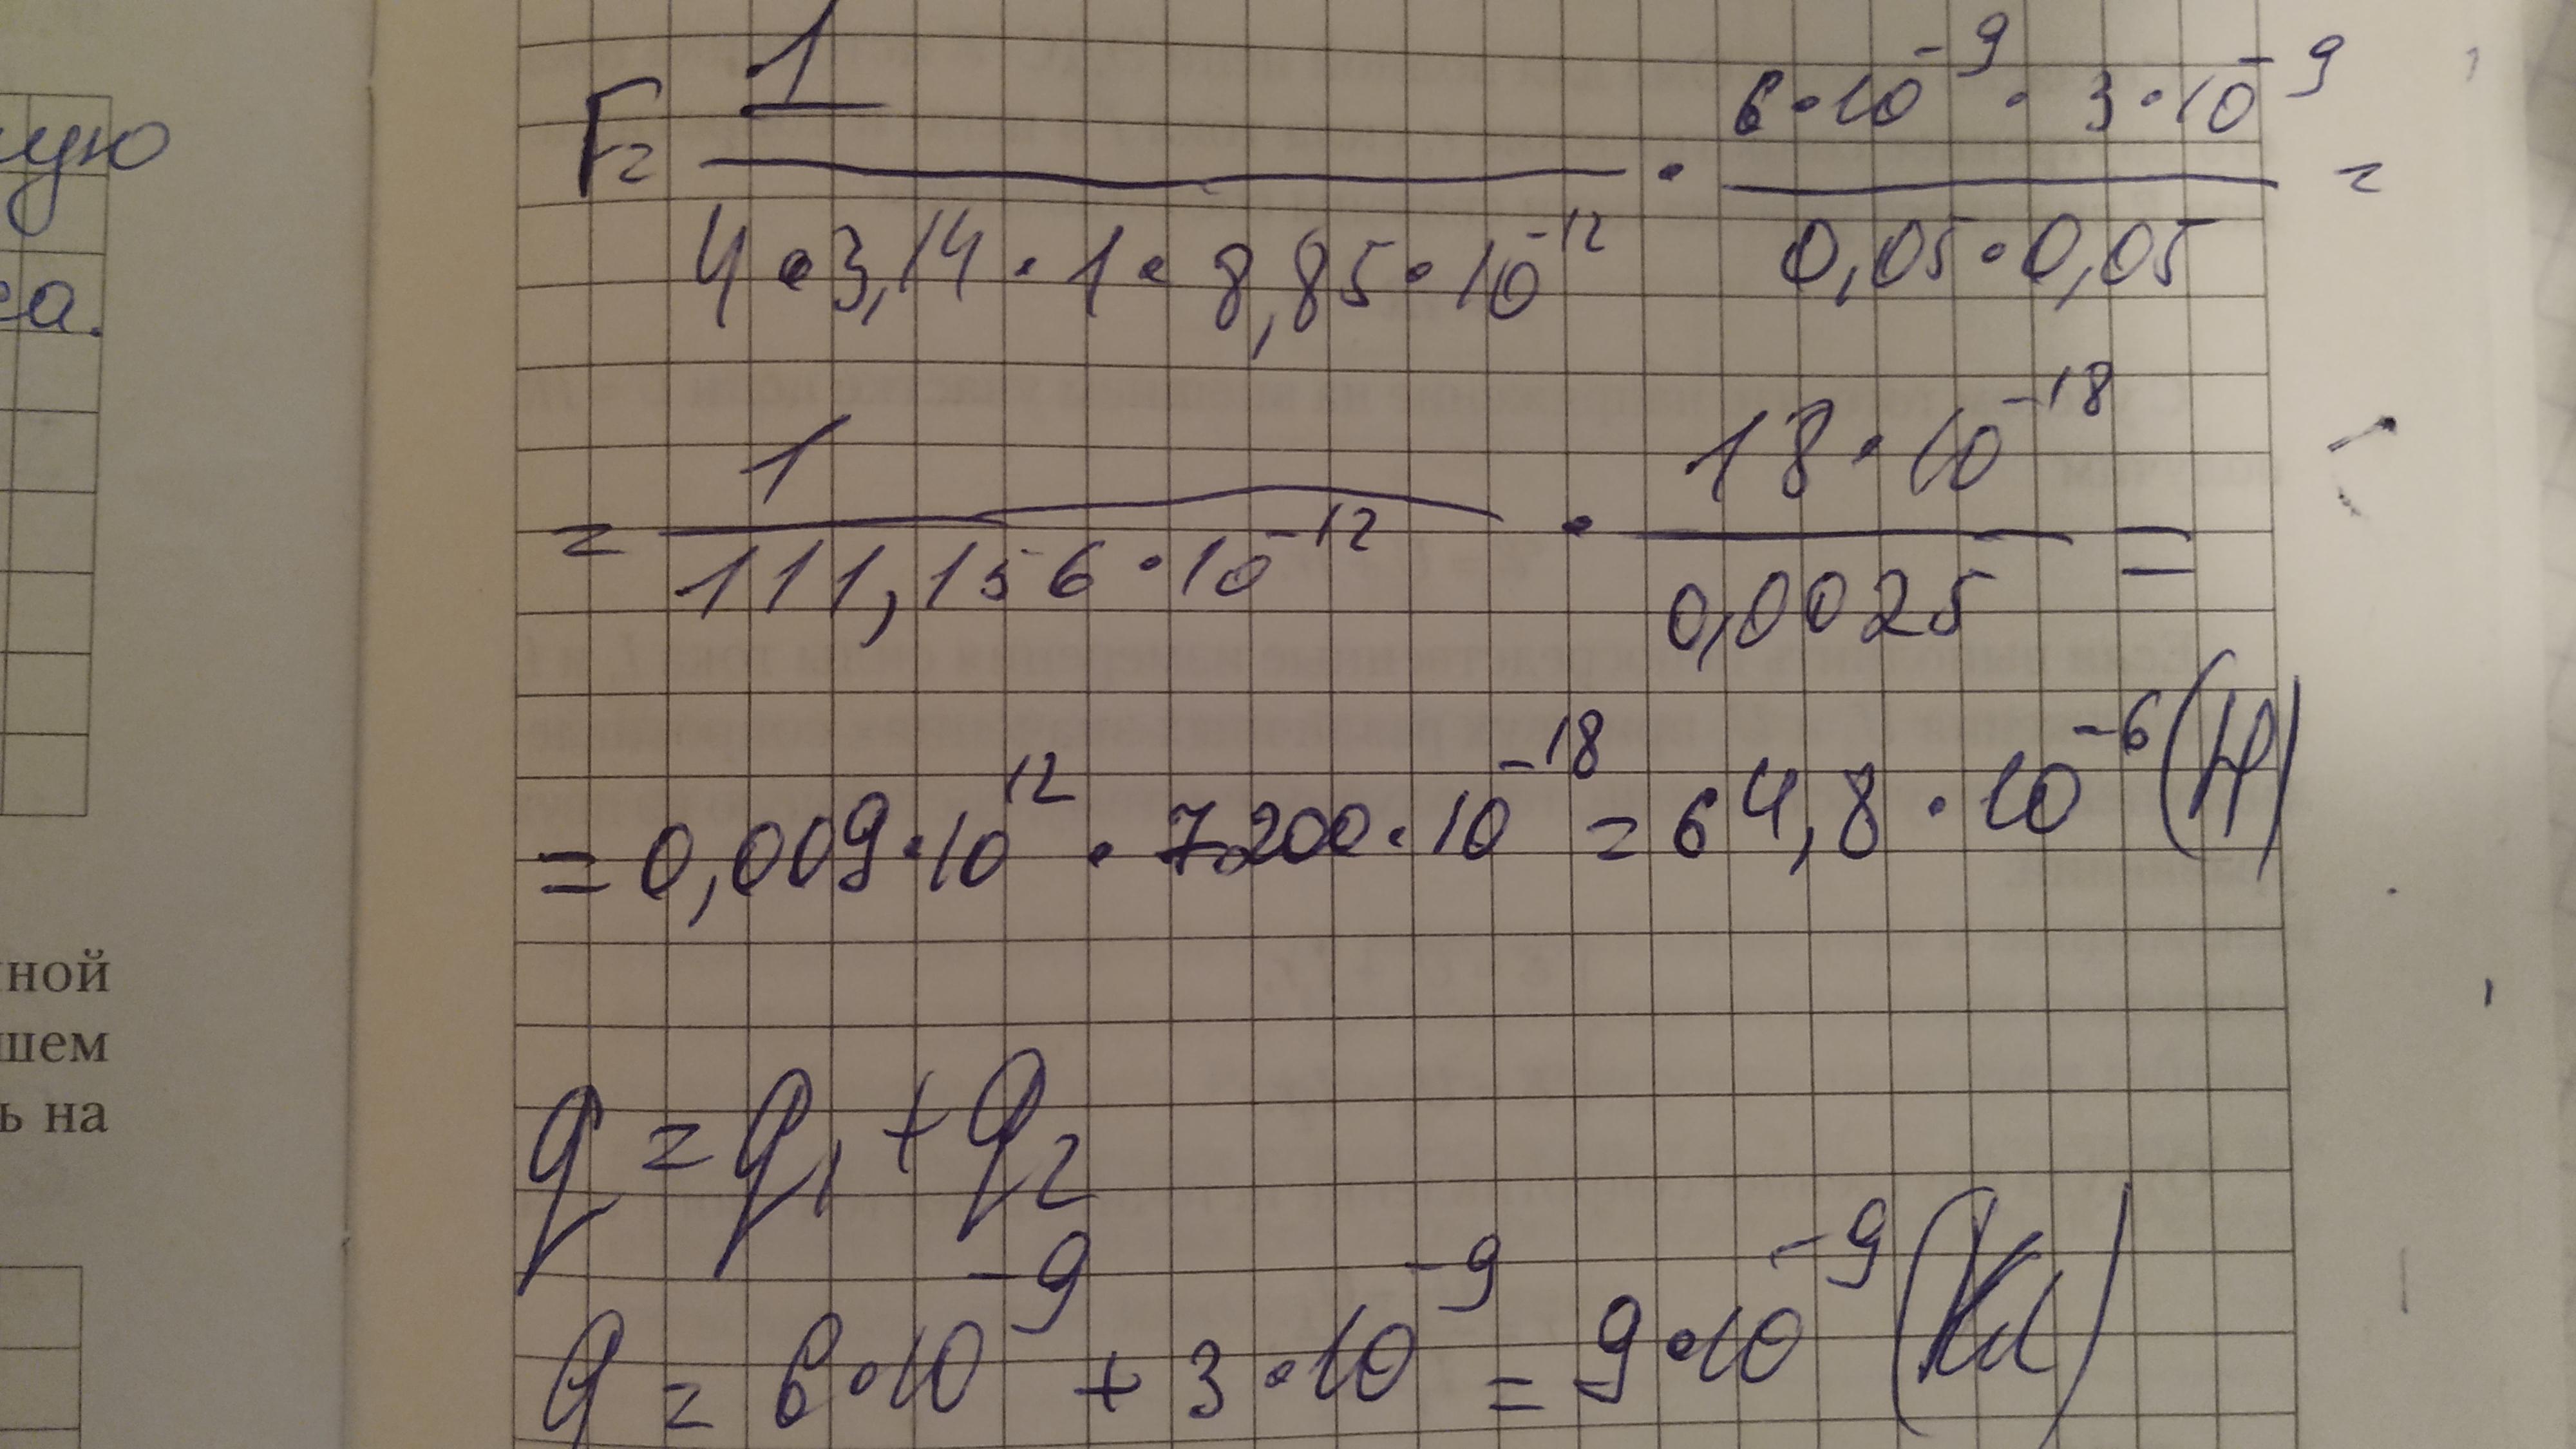 ую
са.
нной
шем
ь на
F = 1 / (4 • 3,14 • 1 • 8,85 • 10⁻¹²) • (6 • 10⁻⁹ • 3 • 10⁻⁹) / (0,05 • 0,05) =
= 1 / (111,156 • 10⁻¹²) • (18 • 10⁻¹⁸) / 0,0025 =
= 0,009 • 10¹² • 7200 • 10⁻¹⁸ = 64,8 • 10⁻⁶ (Н)
q = q₁ + q₂
q = 6 • 10⁻⁹ + 3 • 10⁻⁹ = 9 • 10⁻⁹ (Кл)